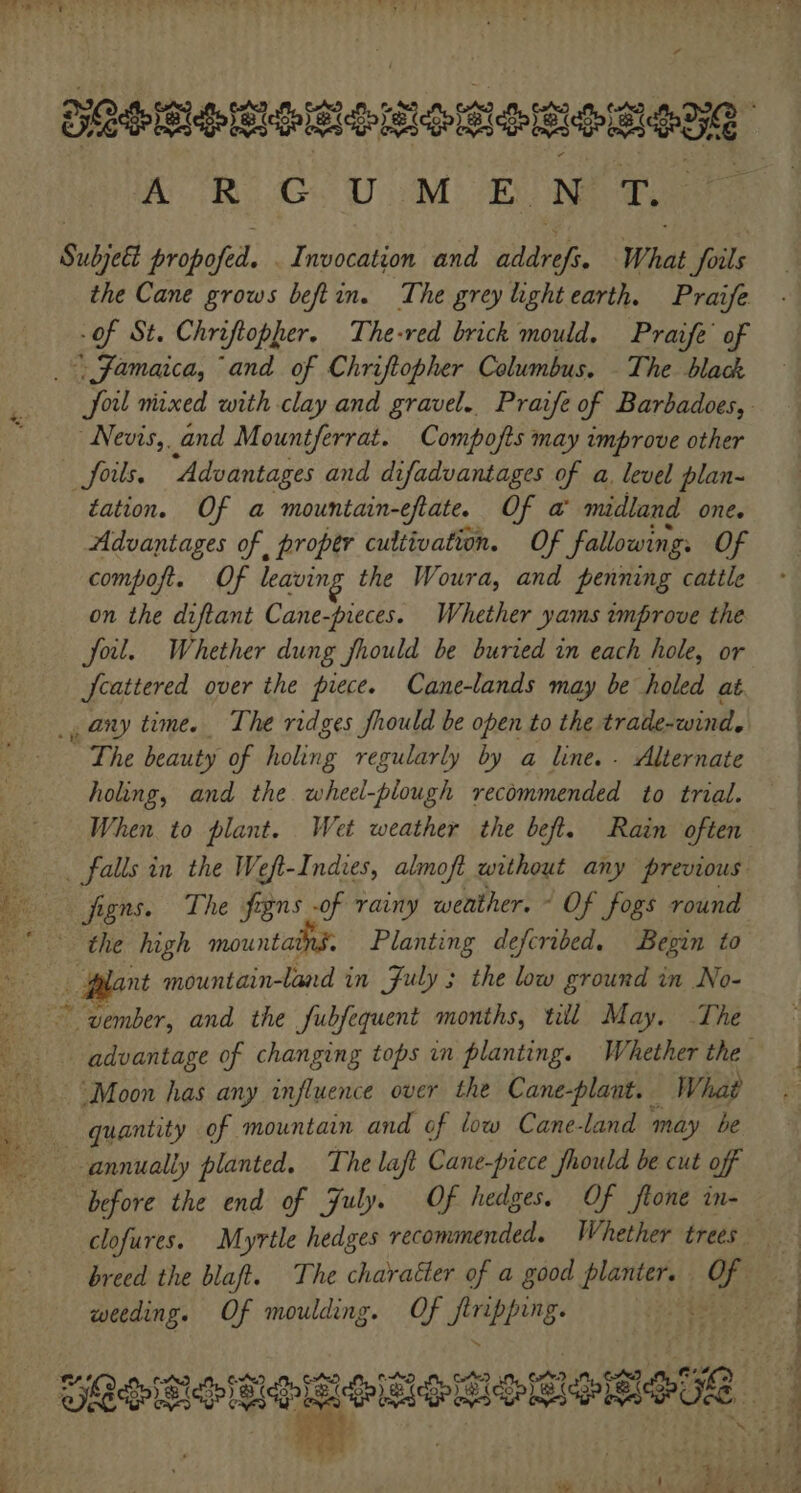 ARGUMENT.
Subject propoſed. Invocation and addreſs. What ſoils
the Cane grows beſt in. The grey light earth. Praiſe
of St. Chriſtopher. The red brick mould. Praiſe of
Jamaica, and of Chriſtopher Columbus. The black
ſoil mixed with clay and gravel. Praiſe of Barbadoes,
Nevis, and Mountſerrat. Compoſts may improve other
ſoils. Advantages and diſadvantages of a level plan-
tation. Of a mountain-eſtate. Of a midland one.
Advantages of proper cultivation. Of fallowing. Of
compoſt. Of leaving the Woura, and penning cattle
on the diſtant Cane-pieces. Whether yams improve the
ſoil. Whether dung ſhould be buried in each hole, or
ſcattered over the piece. Cane-lands may be holed at
any time. The ridges ſhould be open to the trade-wind.
The beauty of holing regularly by a line. Alternate
holing, and the wheel-plough recommended to trial.
When to plant. Wet weather the beſt. Rain often
falls in the Weſt-Indies, almoſt without any previous
ſigns. The ſigns of rainy weather. Of fogs round
the high mountains. Planting deſcribed. Begin to
plant mountain-land in July; the low ground in No-
vember, and the ſubſequent months, till May. The
advantage of changing tops in planting. Whether the
Moon has any influence over the Cane-plant. What
quantity of mountain and of low Cane-land may be
annually planted. The laſt Cane-piece ſhould be cut off
before the end of July. Of hedges. Of ſtone in-
cloſures. Myrtle hedges recommended. Whether trees
breed the blaſt. The character of a good planter. Of
weeding. Of moulding. Of ſtripping.